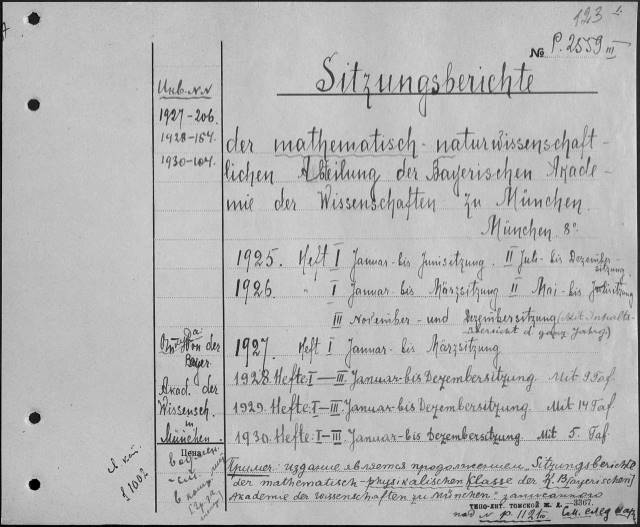 123
№ P. 2559 III
Sitzungsberichte
Инв. NN
1927-206.
1928-157.
1930-104.
der mathematisch-naturwissenschaft-
lichen Abteilung der Bayerischen Akade-
mie der Wissenschaften zu München.
München. 8°.
1925. Heft I Januar- bis Junisitzung. II Juli- bis Dezember-
sitzung
1926. " I Januar- bis Märzsitzung II Mai- bis Julisitzung
III November- und Dezembersitzung (Mit Inhalts-
übersicht d. ganz. Jahrg.)
1927. Heft I Januar- bis Märzsitzung
1928. Hefte: I-III. Januar- bis Dezembersitzung. Mit 9 Taf.
1929. Hefte: I-III. Januar- bis Dezembersitzung. Mit 14 Taf.
1930. Hefte: I-III. Januar- bis Dezembersitzung. Mit 5. Taf.
Да
von der
Bayer.
Akad. der
Wissensch.
in
München.
Ценз.
Примеч: издание является продолжением "Sitzungsberichte
der mathematisch-physikalischen Klasse der K. B/ayerischen/
Akademie der Wissenschaften zu München" записанного
под № P. 112 См. след кар.
ТИПО-ЛИТ. ТОМСКОЙ Ж. Д.—3367.